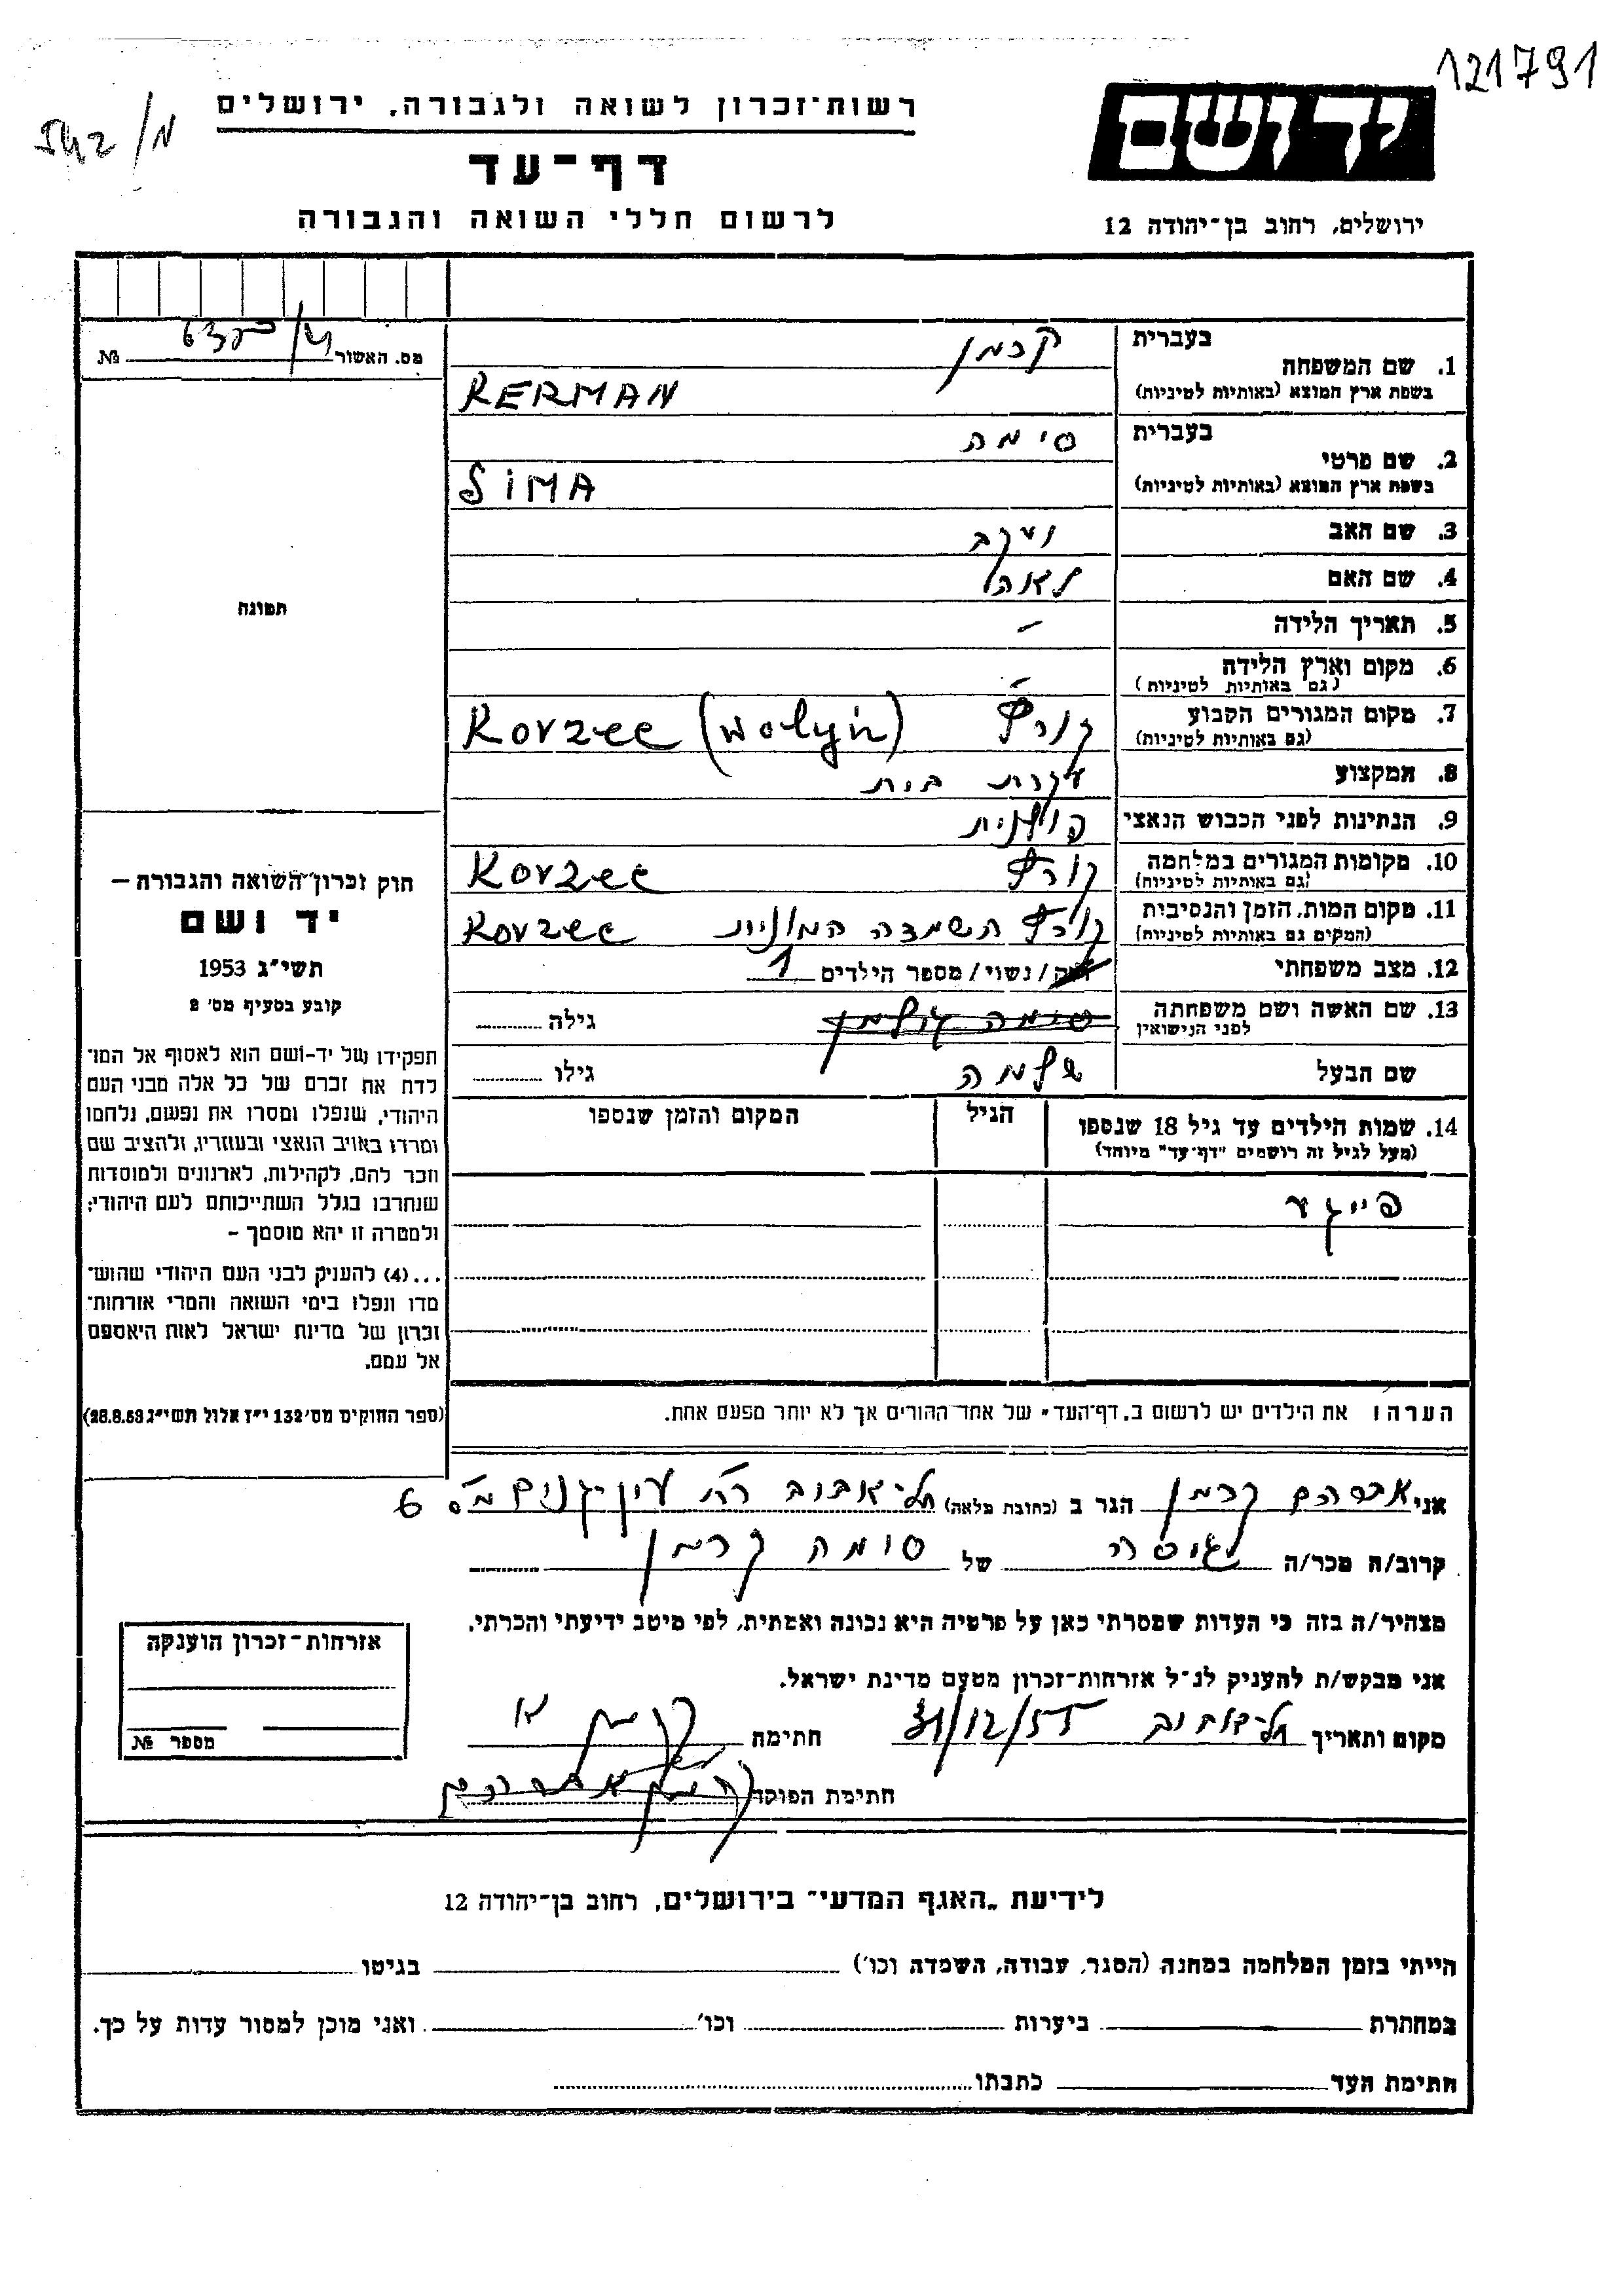 121791
542/מ
יד ושם
רשות־זכרון לשואה ולגבורה, ירושלים
דף־עד
לרשום חללי השואה והגבורה
ירושלים, רחוב בן־יהודה 12
מס. האשור №
בעברית קרמן
1. שם המשפחה
בשפת ארץ המוצא (באותיות לטיניות) KERMAN
בעברית סימה
2. שם פרטי
בשפת ארץ המוצא (באותיות לטיניות) SiMA
3. שם האב יעקב
4. שם האם לאה
5. תאריך הלידה –
6. מקום וארץ הלידה
(גם באותיות לטיניות) –
7. מקום המגורים הקבוע קורץ Korzec (Wołyń)
(גם באותיות לטיניות)
8. המקצוע עקרת בית
9. הנתינות לפני הכבוש הנאצי פולנית
10. מקומות המגורים במלחמה קורץ Korzec
(גם באותיות לטיניות)
11. מקום המות, הזמן והנסיבות קורץ השמדה המונית Korzec
(המקום גם באותיות לטיניות)
12. מצב משפחתי רוק/נשוי/מספר הילדים 1
13. שם האשה ושם משפחתה סימה גילה
לפני הנישואין
שם הבעל שלמה גילו
14. שמות הילדים עד גיל 18 שנספו הגיל המקום והזמן שנספו
(מעל לגיל זה רושמים "דף־עד" מיוחד)
פייגע
הערה! את הילדים יש לרשום ב„דף־העד" של אחד ההורים אך לא יותר מפעם אחת.
תמונה
חוק זכרון השואה והגבורה –
יד ושם
תשי"ג 1953
קובע בסעיף מס' 2
תפקידו של יד־ושם הוא לאסוף אל המו־
לדת את זכרם של כל אלה מבני העם
היהודי, שנפלו ומסרו את נפשם, נלחמו
ומרדו באויב הנאצי ובעוזריו, ולהציב שם
וזכר להם, לקהילות, לארגונים ולמוסדות
שנחרבו בגלל השתייכותם לעם היהודי;
ולמטרה זו יהא מוסמך –
...(4) להעניק לבני העם היהודי שהוש־
מדו ונפלו בימי השואה והמרי אזרחות־
זכרון של מדינת ישראל לאות היאספם
אל עמם.
(ספר החוקים מס' 132 י"ז אלול תשי"ג 28.8.53)
אני אברהם קרמן הגר ב (כתובת מלאה) תל־אביב רח' עין־גנים מס 6
קרוב/ה מכר/ה לגיסה של סימה קרמן
מצהיר/ה בזה כי העדות שמסרתי כאן על פרטיה היא נכונה ואמתית, לפי מיטב ידיעתי והכרתי.
אני מבקש/ת להעניק לנ"ל אזרחות־זכרון מטעם מדינת ישראל.
מקום ותאריך תל־אביב 31/12/55 חתימה קרמן א
חתימת הפוקד
אזרחות־זכרון הוענקה
מספר №
לידיעת „האגף המדעי" בירושלים, רחוב בן־יהודה 12
הייתי בזמן המלחמה במחנה (הסגר, עבודה, השמדה וכו') בגיטו
במחתרת ביערות וכו' ואני מוכן למסור עדות על כך.
חתימת העד כתבתו